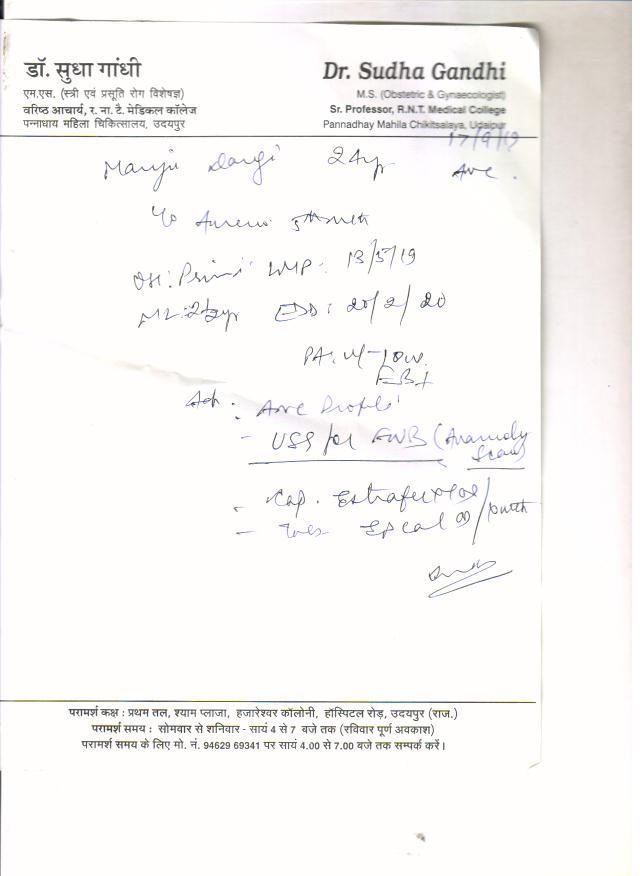 डॉ. सुधा गांधी
एम.एस. (स्त्री एवं प्रसूति रोग विशेषज्ञ)
वरिष्ठ आचार्य, र. ना. टै. मेडिकल कॉलेज
पन्नाधाय महिला चिकित्सालय, उदयपुर
Dr. Sudha Gandhi
M.S. (Obstetric & Gynaecologist)
Sr. Professor, R.N.T. Medical College
Pannadhay Mahila Chikitsalaya, Udaipur
17/9/19
Manju Dangi 24yr ANC.
5th month
OH: Primi LMP: 13/5/19
ML: 2½yr EDD: 20/2/20
PA:
Adv: ANC Profile
- USG for FWB (Anamoly Scan)
- Cap.
- Epcal
परामर्श कक्ष : प्रथम तल, श्याम प्लाजा, हजारेश्वर कॉलोनी, हॉस्पिटल रोड़, उदयपुर (राज.)
परामर्श समय : सोमवार से शनिवार - सायं 4 से 7 बजे तक (रविवार पूर्ण अवकाश)
परामर्श समय के लिए मो. नं. 94629 69341 पर सायं 4.00 से 7.00 बजे तक सम्पर्क करें।